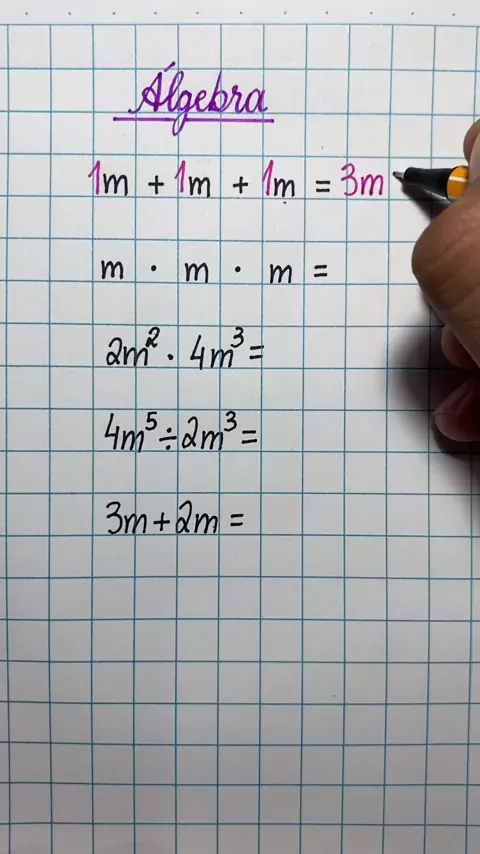 Álgebra
1m + 1m + 1m = 3m
m · m · m =
2m² · 4m³ =
4m⁵ ÷ 2m³ =
3m + 2m =